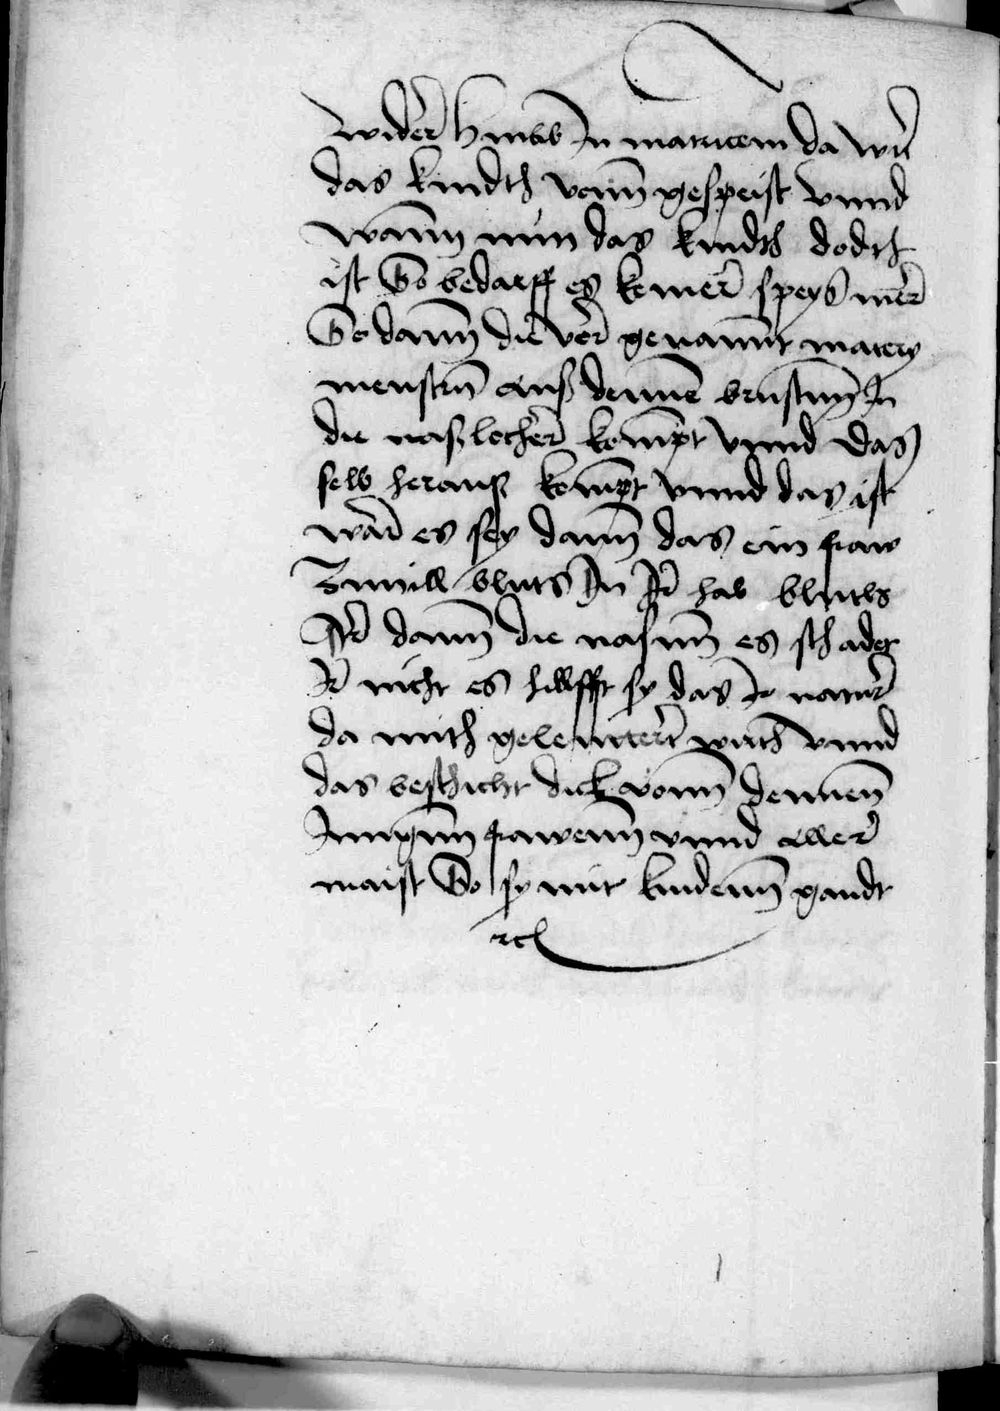 Wider hinab In matricem da wir
das kindth vonn gespeist vnnd
wann nun das kindth dodth
ist So bedarff es keiner speyß mer
So dann die vor genannt matery
menstru auß dennen brustenn In
die naßlocher kompt vnnd das
selb herauß kompt vnnd das ist
war es sey dann das ein fraw
Zuuill bluts In Ir hab bluth
Ir dann die nasenn es schadet
Ir nicht es hillfft sy das Ir natur
da mith geleuttert wirth vnnd
das beschicht dick vonn dennen
Jungenn frawenn vnnd aller
maist So sy mit kindenn gandt
rc